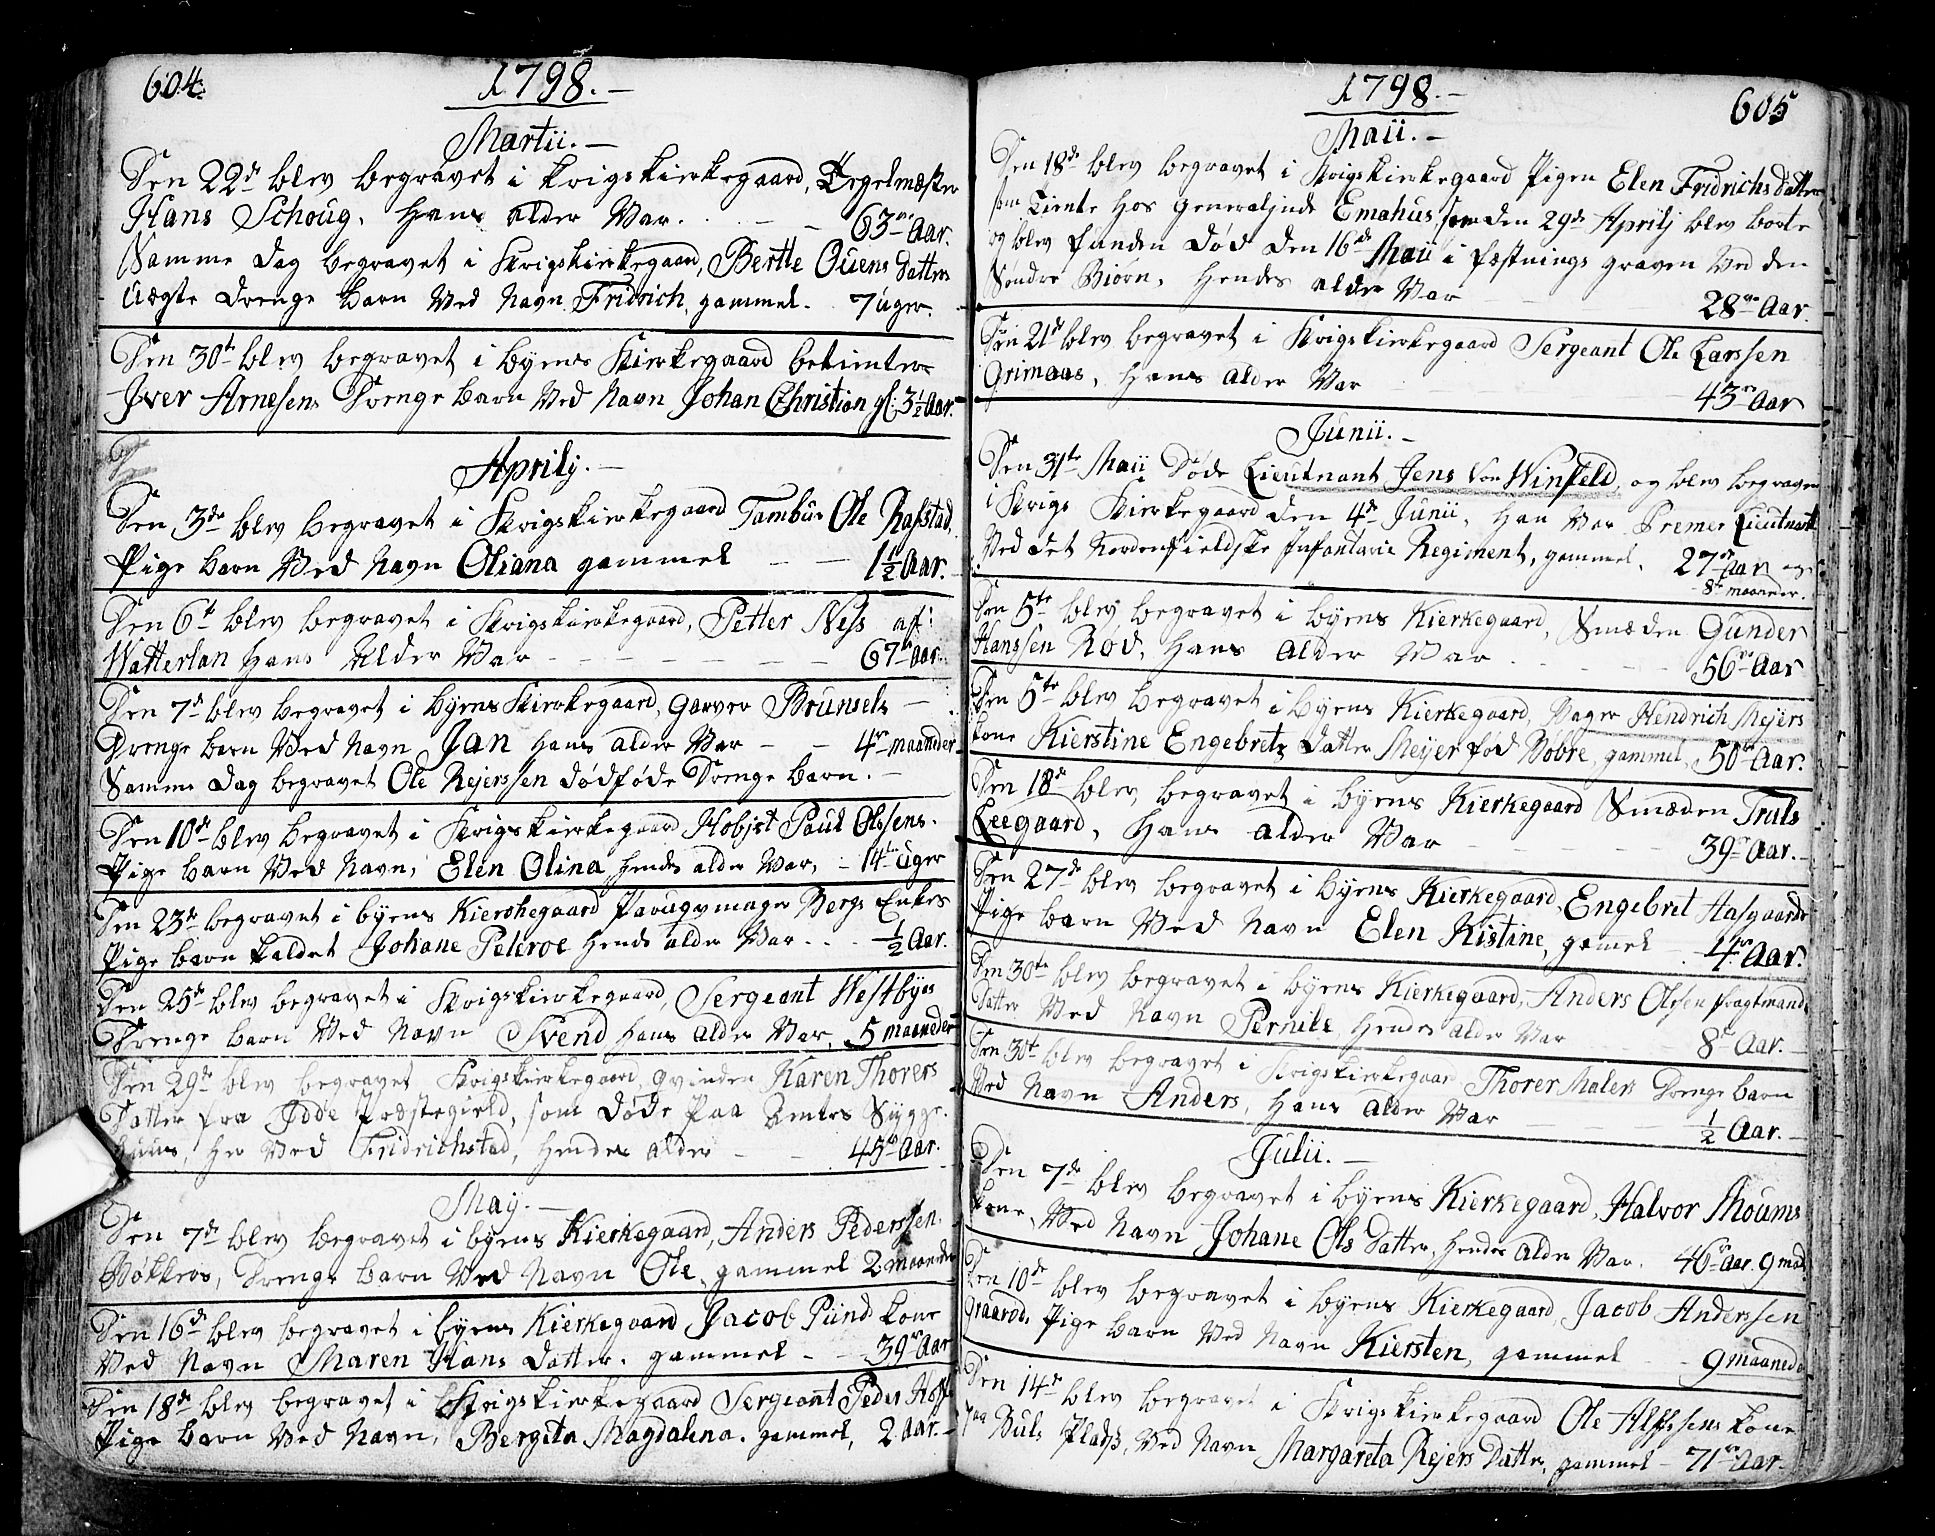 604.
1798. —
Martii. —
Den 22de blev begravet i Krigskierkegaard, Tegelmæster
Hans Schoug, hans alder var . . — 63 Aar.
Samme Dag begravet i Krigskierkegaard, Berthe Ouens Datters
Uægte Drenge barn ved Navn Fridrich, gammel. . 7 uger.
Den 30te blev begravet i byens Kierkegaard betienter
Iver Arnesens Drenge barn ved Navn Johan Christian gl: 3½ Aar.
Aprilij. —
Den 3de blev begravet i Krigskierkegaard Tambur Ole Rasstad,
Pige barn ved Navn Oliana gammel — — 1½ Aar.
Den 6te blev begravet i Krigskierkegaard, Petter Ness af:
Watterlan hans Alder var — — — — 67 Aar.
Den 7de blev begravet i byens Kierkegaard, garver Brunsels —
Drenge barn ved Navn Jan hans alder var — — 4re maaneder
Samme Dag begravet Ole Rejerssen dødføde Drenge barn. —
Den 10de blev begravet i Krigskierkegaard Hobist Paul Olssens.
Pige barn ved Navn, Elen Olina, hendes alder var, — 14ten uger
Den 23de begravet i byens Kierchegaard Parugvmager Bergs Enkes
Pige barn kaldet Johane Peleroe hends alder var . . . ½ Aar.
Den 25de blev begravet i Krigskierkegaard, Sergeant Westbyes
Drenge barn ved Navn Svend hans alder var, 5 maaneder
Den 29de blev begravet Krigskierkegaard, qvinden Karen Thorers
Datter fra Idde Præstegield, som døde paa Amtes Sygge-
huus, her ved Fridrichstad, hendes alder — — 45 Aar.
May. —
Den 7de blev begravet i byens Kierkegaard, Anders Pederssen.
Bøkkers, Drenge barn ved Navn Ole, gammel 2 maaneder
Den 16de blev begravet i byens Kierkegaard Jacob Pund kone
ved Navn Maren Hans Datter. gammel — — 39 Aar
Den 18de blev begravet i Krigskierkegaard Sergeant Peder Hoff
Pige barn ved Navn, Bergita Magdalena. gammel, 2 Aar. —
1798. —
605
Maii. —
Den 18de blev begravet i Krigskierkegaard Pigen Elen Fridrichs Datter
som tiente hos Generalinde Emahus, som den 29de Aprilj blev borte
og blev funden død den 16de Maii i fæstnings graven ved den
Søndre Biørn, hendes alder var — — 28 Aar.
Den 21de blev begravet i Krigskierkegaard Sergeant Ole Larssen
Grimaas, hans alder var — — 43 Aar
Junii. —
Den 31te Maii døde Lieutnant Jens von Winfeld, og blev begraven
i Krigs Kierkegaard den 4de Junii, han var Premer Lieutnant
ved det Nordenfieldske Infantarie Regiment, gammel, 27 Aar og
8te maaneder.
Den 5te blev begravet i byens Kierkegaard, Smæden Gunder
Hanssen Rød, hans alder var . . . — — 56 Aar
Den 5te blev begravet i byens Kierkegaard, Bager Hendrich Mejers
kone Kierstine Engebrets Datter Meyer fød Bøbre, gammel, 50 Aar.
Den 18de blev begravet i byens Kierkegaard Smæden Truls
Leegaard, hans alder var — — — 39 Aar. —
Den 27de blev begravet i byens Kierkegaard, Engebret Hasgaards
Pige barn ved Navn Elen Kistine, gamel — . 4re Aar.
Den 30te blev begravet i byens Kierkegaard, Anders Olssen Fragtmands
Datter ved Navn Pernile, hendes alder var — — 8te Aar. —
Den 30te blev begravet i Krigskierkegaard Thorer Malers Drenge barn
ved Navn Anders, hans alder var — — — ½ Aar. —
Julii. —
Den 7de blev begravet i byens Kierkegaard, Halvor Moums
kone, ved Navn Johane Ols Datter, hendes alder var. 46 Aar. 9 mad.
Den 10de blev begravet i byens Kierkegaard, Jacob Anderssen
Graarød, Pige barn ved Navn Kiersten, gammel — — 9 maaneder
Den 14de blev begravet i Krigskierkegaard Ole Alfssens kone
paa Buls Plads, ved Navn Margareta Rejers Datter, gammel — 71 Aar.